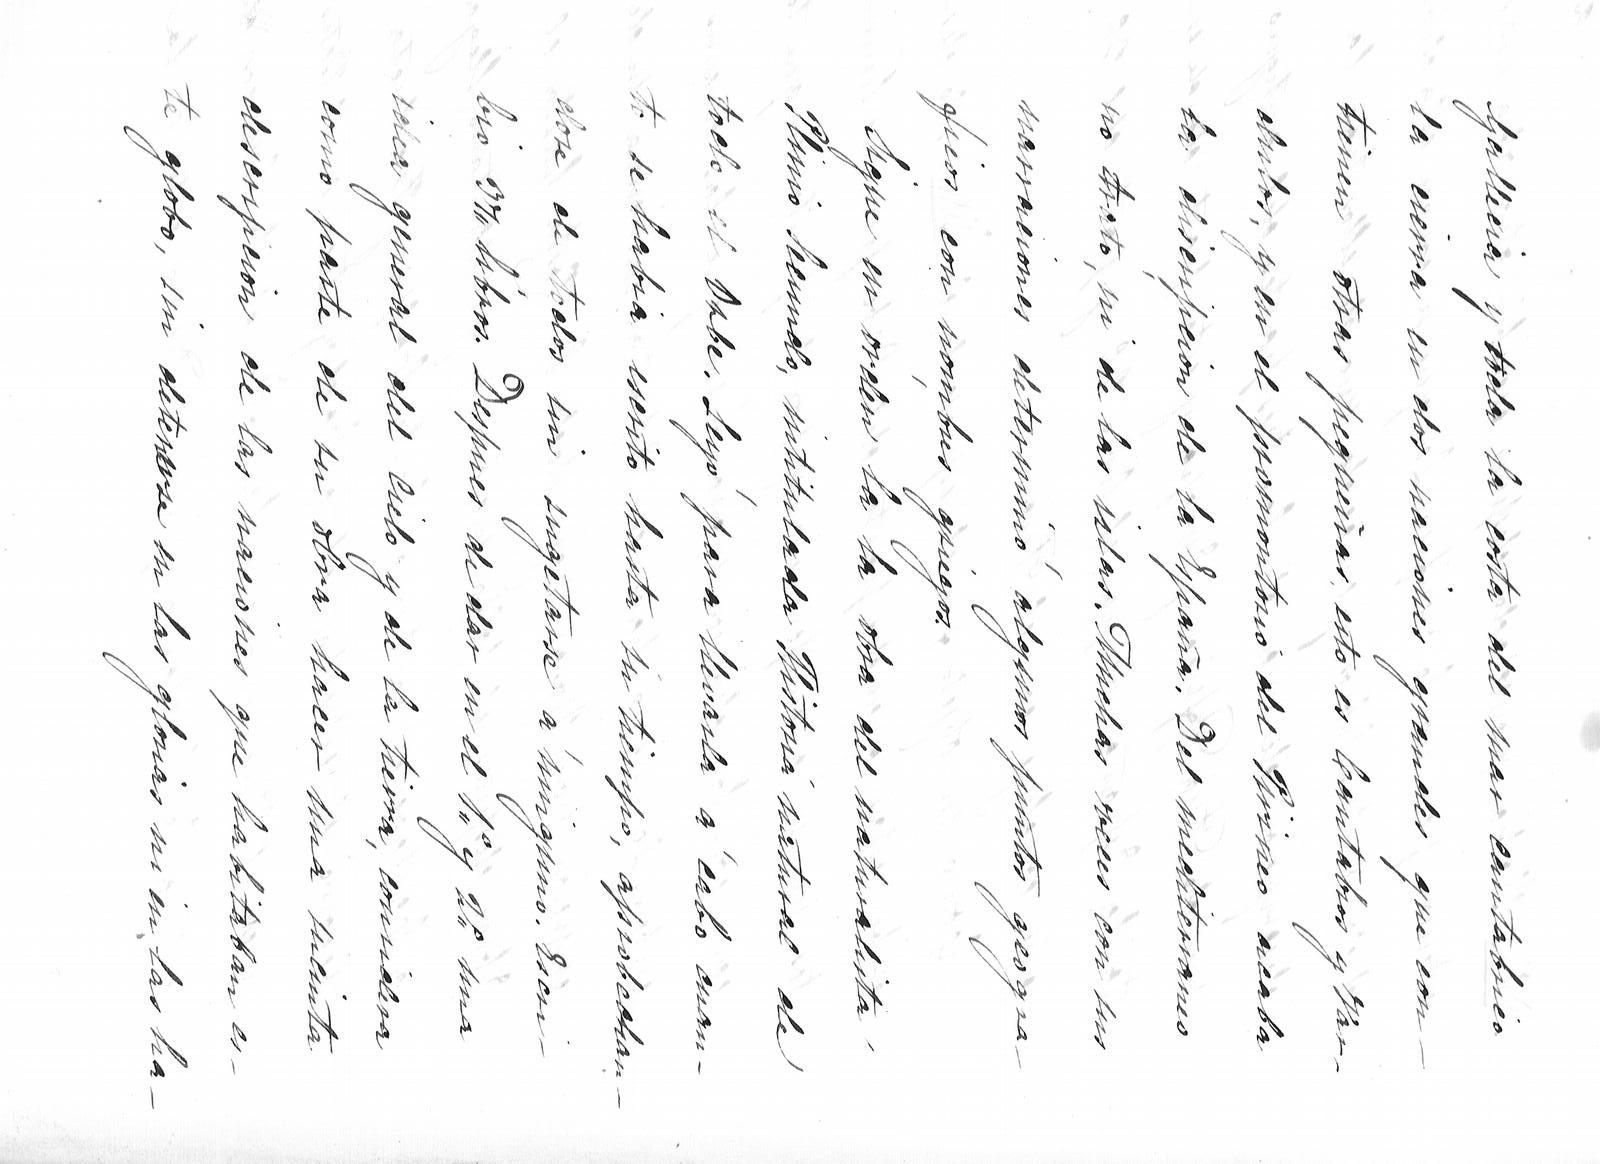 Gallecia y toda la costa del mar cantabrico
la cierra en dos naciones grandes que con-
tienen otras pequeñas, esto es Cantabros y Vár-
dulos, y en el promontorio del Pirineo acaba
la discripcion de la España. Del mediterraneo
no trató, ni de las islas. Muchas veces con sus
narraciones determinó algunos puntos geogra-
ficos con nombres griegos.
Sigue en orden la la obra del naturalista
Plinio Segundo, intitulada Historia natural de
todo el Orbe. Leyó para llevarla a cabo cuan-
to se habia escrito hasta su tiempo, aprobechan-
dose de todos sin sugetarse a ninguno. Escri-
bió 37 libros. Despues de dar en el 1.º y 2.º una
idea general del cielo y de la tierra, considera
como parte de su obra hacer una sucinta
descripcion de las naciones que habitaban es-
te globo, sin detenerse en las glorias ni en las ha-